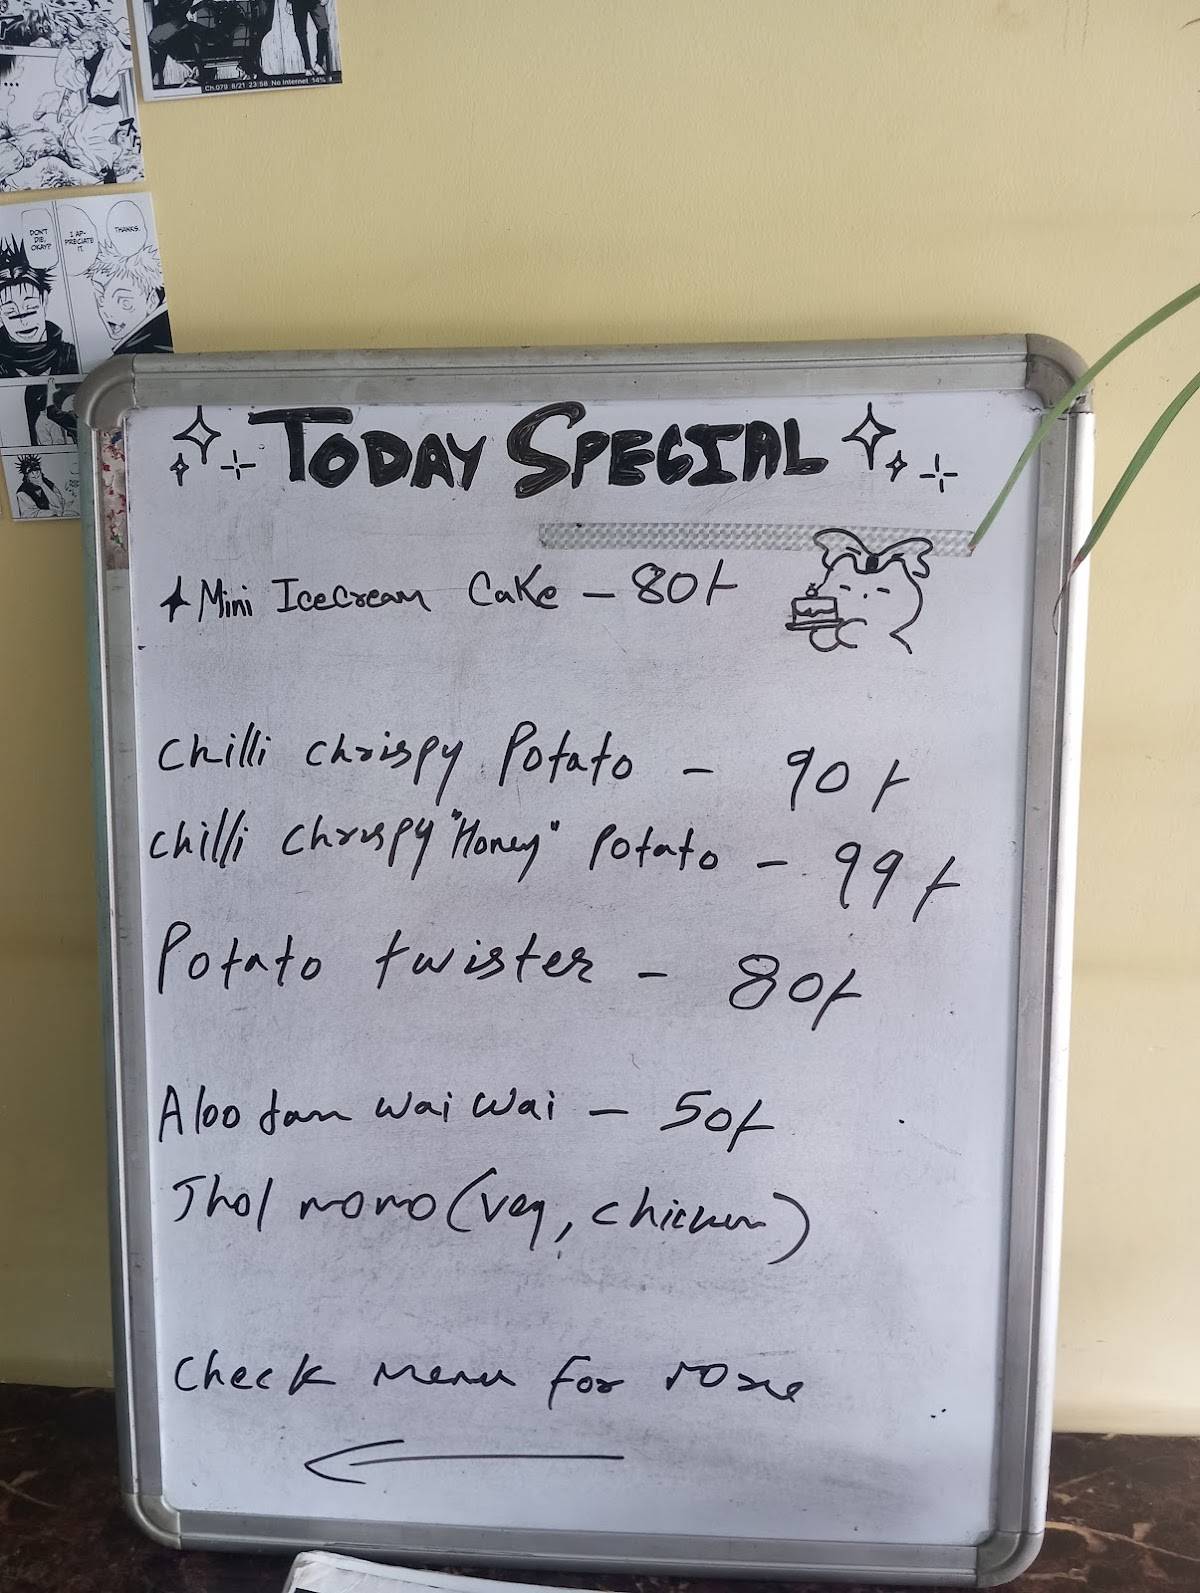 Ch.079 8/21 23:58 No Internet 14%
DON'T
DIE,
OKAY?
I AP-
PRECIATE
IT.
THANKS.
TODAY SPECIAL
Mini Icecream Cake – 80/-
Chilli chrispy Potato – 90/-
Chilli chrispy "Honey" Potato – 99/-
Potato twister – 80/-
Aloo dam wai wai – 50/-
Jhol momo (veg, chicken)
Check menu For more